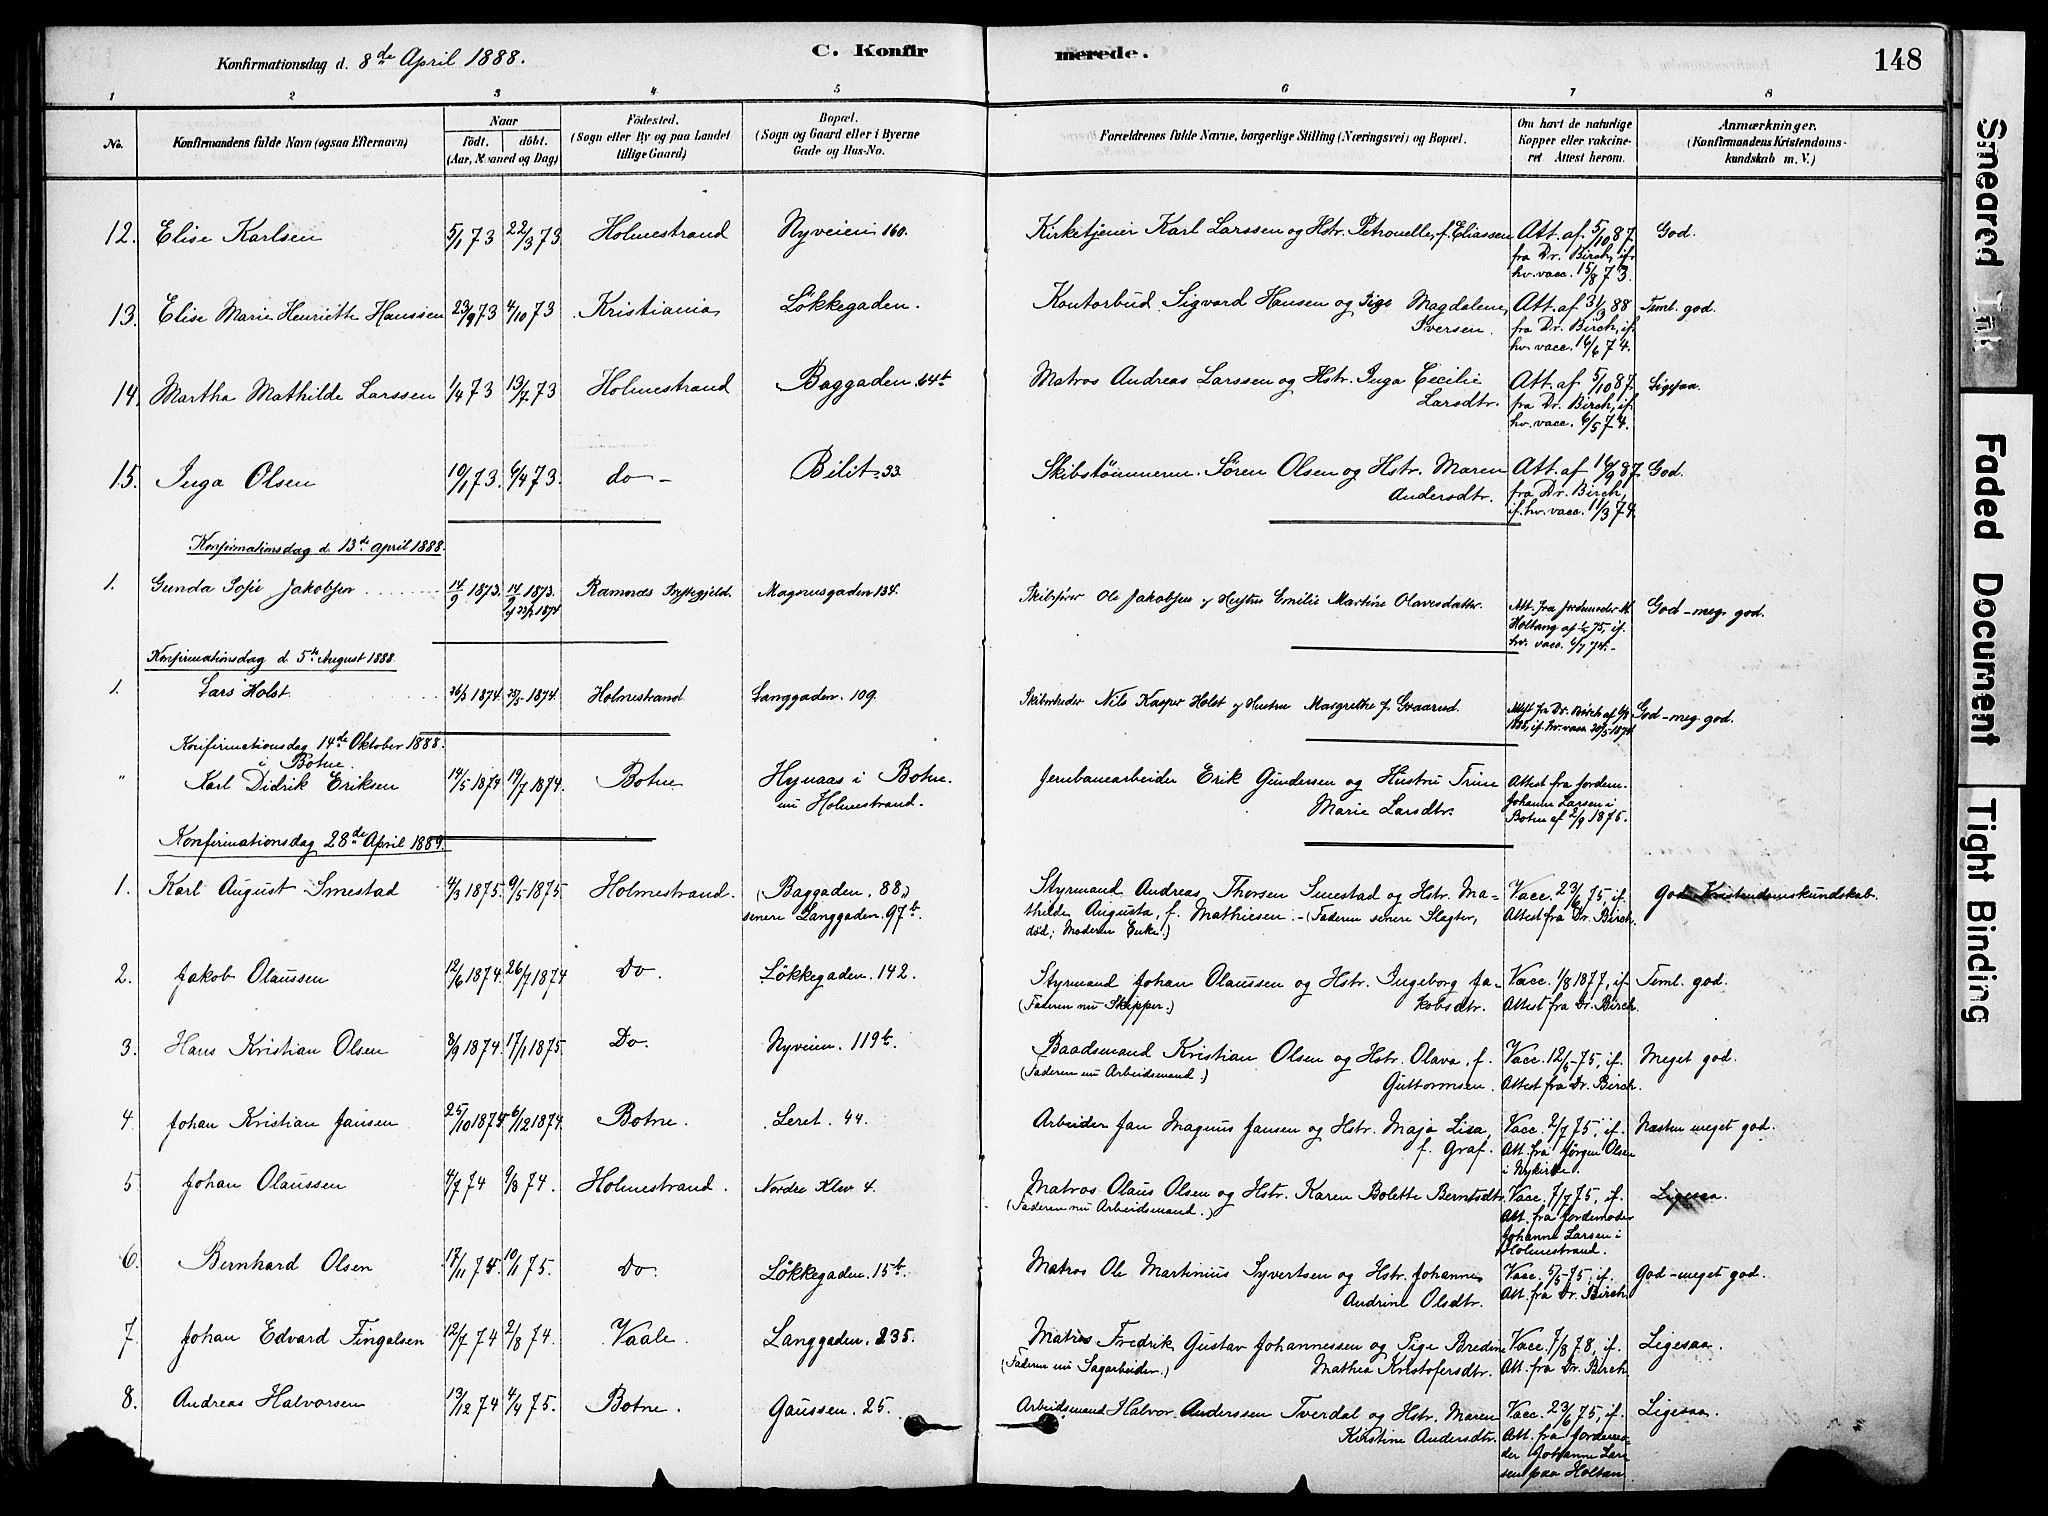 Konfirmationsdag d. 8de April 1888.
C. Konfirmerede.
148
1 2 3 4 5 6 7 8
No.
Konfirmandens fulde Navn (ogsaa Efternavn)
Naar
Födt. döbt.
(Aar, Maaned og Dag)
Födested.
(Sogn eller By og paa Landet
tillige Gaard)
Bopæl.
(Sogn og Gaard eller i Byerne
Gade og Hus-No.
Forældrenes fulde Navne, borgerlige Stilling (Næringsvei) og Bopæl.
Om havt de naturlige
Kopper eller vakcine-
ret Attest herom.
Anmærkninger.
(Konfirmandens Kristendoms-
kundskab m. V.)
12. Elise Karlsen 5/1 73 22/3 73 Holmestrand Nyveien 160. Kirketjener Karl Larssen og Hstr. Petronelle, f. Eliassen Att. af 5/10 87 God.
fra Dr. Birch, if.
hv. vacc. 15/8 73.
13. Elise Marie Henriette Hanssen 23/9 73 4/10 73 Kristiania Lökkegaden. Kontorbud Sigvard Hansen og Pige Magdalene Att. af 31/3 88 Teml. god.
Iversen. fra Dr. Birch, if.
hv. vacc. 16/6 74.
14. Martha Mathilde Larssen 1/4 73 13/7 73 Holmestrand Baggaden 64b Matros Andreas Larssen og Hstr. Inga Cecilie Att. af 5/10 87. Ligesaa.
Larsdtr. fra Dr. Birch, if.
hv. vacc. 6/5 74.
15. Inga Olsen 10/1 73. 6/4 73. do - Bilit 33 Skibstömmerm. Sören Olsen og Hstr. Maren Att. af 16/9 87. God.
Andersdtr. fra Dr. Birch,
if. hv. vacc. 11/3 74.
Konfirmationsdag d. 13de April 1888.
1. Gunda Sofie Jakobsen 14/9 1873. 14/9 1873. Ramnæs Præstegjeld. Magnusgaden 134. Skibsfører Ole Jakobsen og Hustru Emilie Martine Olavesdatter. Att. fra Jordemoder M. God - meg. god.
Holtang af 75, if.
hv. vacc. 6/7 74.-
Konfirmationsdag d. 5te August 1888.
1. Lars Holst 26/3 1874. 25/5 1874. Holmestrand Langgaden. 109. Skibsreder Nils Kasper Holst og Hustru Margrethe f. Gvaarud. Attest fra Dr. Birch af God - meg. god.
1888, if. hv. vacc. 20/5 1874.
Konfirmationsdag 14de Oktober 1888.
i Botne.
" Karl Didrik Eriksen 14/5 1874 19/7 1874. Botne Hynaas i Botne. Jernbanearbeider Erik Gundersen og Hustru Trine Attest fra Jordem.
nu Holmestrand. Marie Larsdtr. Johanne Larsen i
Botne af 2/9 1875.
Konfirmationsdag 28de April 1889.
1. Karl August Smestad 4/3 1875. 9/5 1875 Holmestrand. (Baggaden. 88,) Styrmand Andreas Thorsen Smestad og Hstr. Ma- Vacc. 23/6 75, if. God Kristendomskundskab.
senere Langgaden. 97b. thilde Augusta, f. Mathiesen. - (Faderen senere Slagter, Attest fra Dr. Birch.
död; Moderen Enke.)
2. Jakob Olaussen 12/6 1874 26/7 1874 Do. Lökkegaden. 142. Styrmand Johan Olaussen og Hstr. Ingeborg Ja- Vacc. 1/8 1877, if. Teml. god.
(Faderen nu Skipper.) kobsdtr. Attest fra Dr. Birch.
3. Hans Kristian Olsen 8/9 1874. 17/1 1875. Do. Nyveien. 119b. Baadsmand Kristian Olsen og Hstr. Olava, f. Vacc. 12/5-75, if. Meget god.
(Faderen nu Arbeidsmand.) Guttormsen. Attest fra Dr. Birch.
4. Johan Kristian Jansen 25/10 1874 6/12 1874. Botne. Leret. 44. Arbeider Jan Magnus Jansen og Hstr. Maja Lisa, Vacc. 2/7 75, if. Næsten meget god.
f. Graf. Att. fra Jörgen Olsen
i Nykirke.
5. Johan Olaussen 4/7 74 9/8 74. Holmestrand. Nordre Klev 4. Matros Olaus Olsen og Hstr. Karen Bolette Berntsdtr. Vacc. 7/7 75, if. Ligesaa.
(Faderen nu Arbeidsmand.) Att. fra Jordemoder
Johanne Larsen i
Holmestrand.
6. Bernhard Olsen 17/11 74. 10/1 75. Do. Lökkegaden. 15b. Matros Ole Martinius Syvertsen og Hstr. Johanne Vacc. 5/5-75, if. God - meget god.
Andrine Olsdtr. Att. fra Dr. Birch.
7. Johan Edvard Fingalsen 12/7 74 2/8 74. Vaale. Langgaden. 235. Matros Fredrik Gustav Johannessen og Pige Bredine Vacc. 7/8 78, if. Ligesaa.
(Faderen nu Sagarbeider.) Mathea Kristofersdtr. Att. fra Dr. Birch.
8. Andreas Halvorsen 13/12 74 4/4 75. Botne. Gaussen. 25. Arbeidsmand Halvor Anderssen Tverdal og Hstr. Maren Vacc. 23/6 75, if. Ligesaa.
Kirstine Andersdtr. Att. fra Jordemo-
der Johanne Lar-
sen paa Holtan.
Smeared Ink
Faded Document
Tight Binding